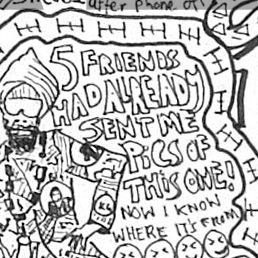 after phone of
5 FRIENDS
HAD ALREADY
SENT ME
PiCS OF
THiS ONE!
NOW I KNOW
WHERE IT'S FROM